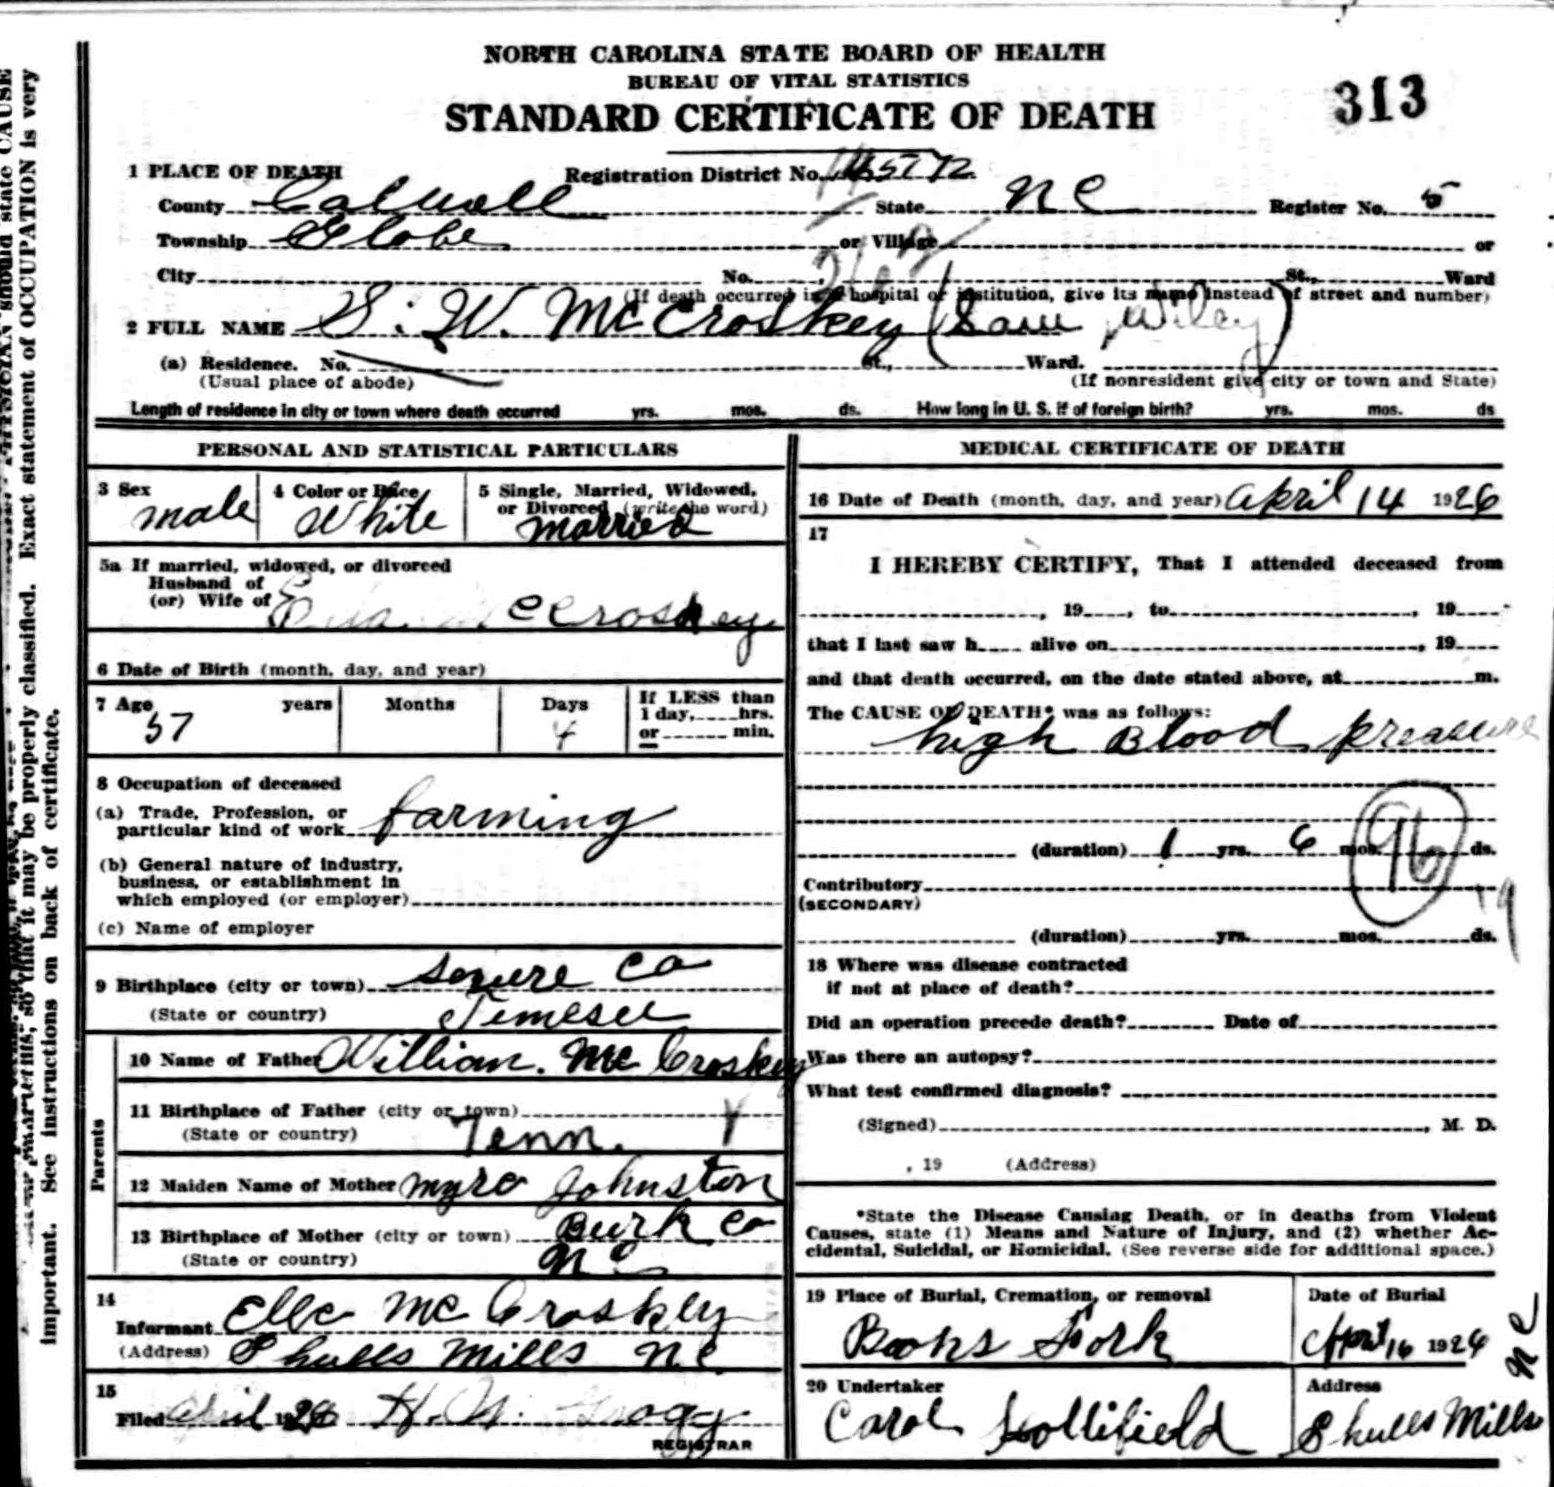 NORTH CAROLINA STATE BOARD OF HEALTH
BUREAU OF VITAL STATISTICS
STANDARD CERTIFICATE OF DEATH
313
1 PLACE OF DEATH
Registration District No.
County Calwell State N C Register No. 5
Township Globe or Village or
City No. St., Ward
(If death occurred in a hospital or institution, give its name instead of street and number)
2 FULL NAME S. W. McCroskey (Sam Wiley)
(a) Residence. No. St., Ward.
(Usual place of abode) (If nonresident give city or town and State)
Length of residence in city or town where death occurred yrs. mos. ds. How long in U. S. if of foreign birth? yrs. mos. ds
PERSONAL AND STATISTICAL PARTICULARS
3 Sex
male
4 Color or Race
White
5 Single, Married, Widowed,
or Divorced (write the word)
married
5a If married, widowed, or divorced
Husband of
(or) Wife of McCroskey
6 Date of Birth (month, day, and year)
7 Age years Months Days If LESS than
1 day, hrs.
or min.
57 4
8 Occupation of deceased
(a) Trade, Profession, or
particular kind of work farming
(b) General nature of industry,
business, or establishment in
which employed (or employer)
(c) Name of employer
9 Birthplace (city or town) Sevure Co
(State or country) Temesee
Parents
10 Name of Father William. McCroskey
11 Birthplace of Father (city or town)
(State or country) Tenn.
12 Maiden Name of Mother Myra Johnston
13 Birthplace of Mother (city or town) Burk Co
(State or country) N C
14
Informant Ella McCroskey
(Address) Shulls Mills N C
15
Filed April 1926 H. N. Gragg
REGISTRAR
MEDICAL CERTIFICATE OF DEATH
16 Date of Death (month, day, and year) April 14 1926
17
I HEREBY CERTIFY, That I attended deceased from
, 19 , to , 19
that I last saw h alive on , 19
and that death occurred, on the date stated above, at m.
The CAUSE OF DEATH* was as follows:
high Blood preasure
(duration) 1 yrs. 6 mos. ds.
96
Contributory
(SECONDARY)
(duration) yrs. mos. ds.
18 Where was disease contracted
if not at place of death?
Did an operation precede death? Date of
Was there an autopsy?
What test confirmed diagnosis?
(Signed) , M. D.
, 19 (Address)
*State the Disease Causing Death, or in deaths from Violent
Causes, state (1) Means and Nature of Injury, and (2) whether Ac-
cidental, Suicidal, or Homicidal. (See reverse side for additional space.)
19 Place of Burial, Cremation, or removal
Boons Fork
Date of Burial
April 16 1926
20 Undertaker
Carol Hollifield
Address
Shulls Mills N C
PHYSICIAN should state CAUSE
so that it may be properly classified. Exact statement of OCCUPATION is very
important. See instructions on back of certificate.